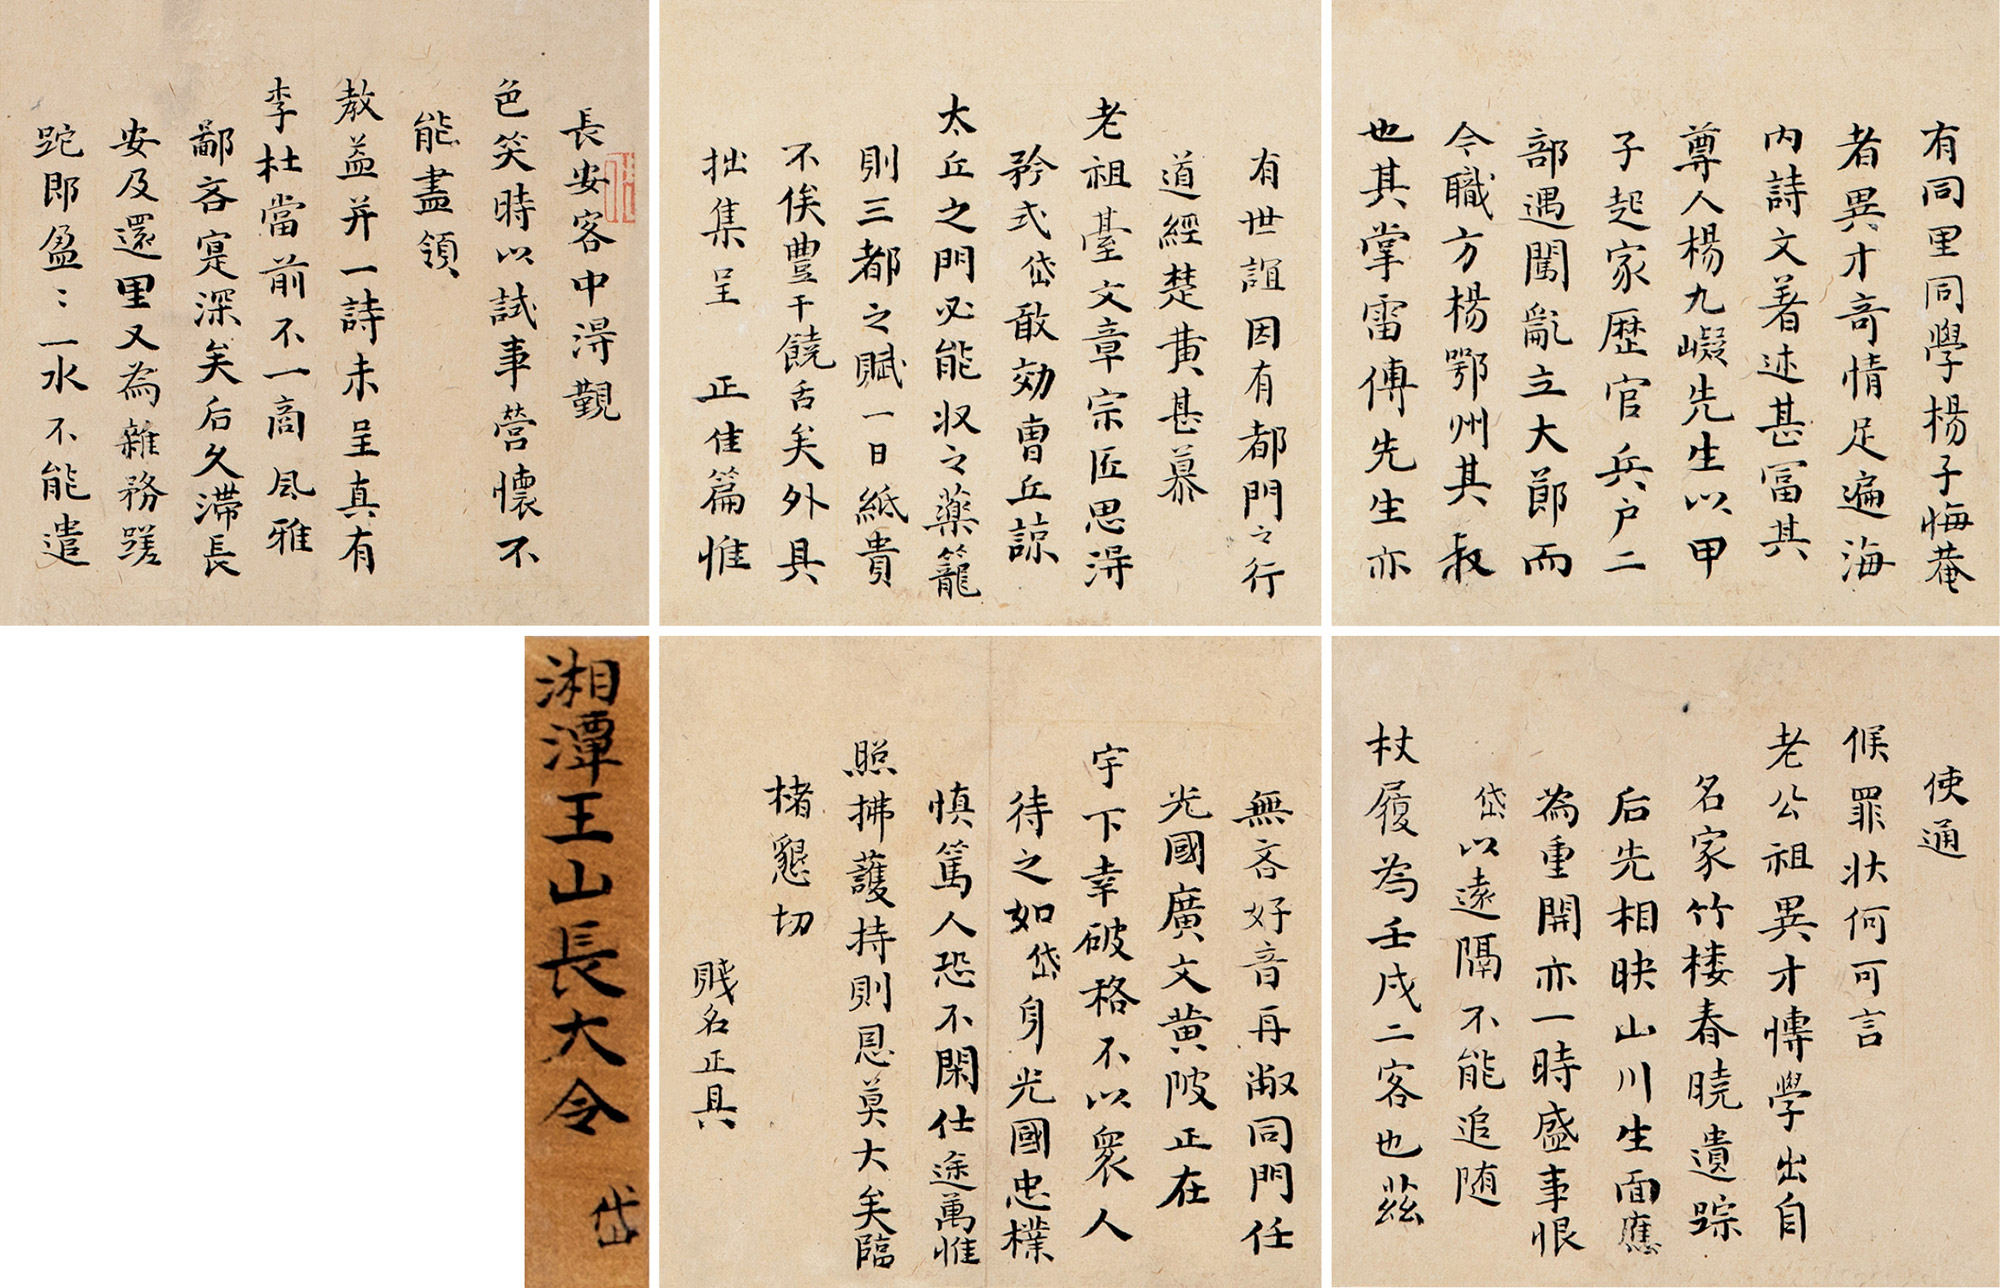 長安客中得覲
色笑時以試事營懷不
能盡領
教益并一詩未呈真有
李杜當前不一高風雅
鄙吝寔深矣后久滯長
安及還里又為雜務蹉
跎即盈〻一水不能遣
使通
候罪狀何可言
老公祖異才博學出自
名家竹樓春曉遺踪
后先相映山川生面應
為重開亦一時盛事恨
岱以遠隔不能追随
杖履為壬戌二客也茲
有同里同學楊子悔菴
者異才奇情足遍海
内詩文著述甚冨其
尊人楊九嶷先生以甲
子起家歷官兵户二
部遇闖亂立大節而
今職方楊鄂州其叔
也其掌雷傅先生亦
有世誼因有都門之行
道經楚黃甚慕
老祖臺文章宗匠思得
矜式岱敢効曹丘諒
太丘之門必能収之藥籠
則三都之賦一日紙貴
不俟豐干饒舌矣外具
拙集呈 正佳篇惟
無吝好音再敝同門任
光國廣文黃陂正在
宇下幸破格不以衆人
待之如岱身光國忠樸
慎篤人恐不閑仕途萬惟
照拂護持則恩莫大矣臨
楮懇切
賤名正具
湘潭王山長大令 岱